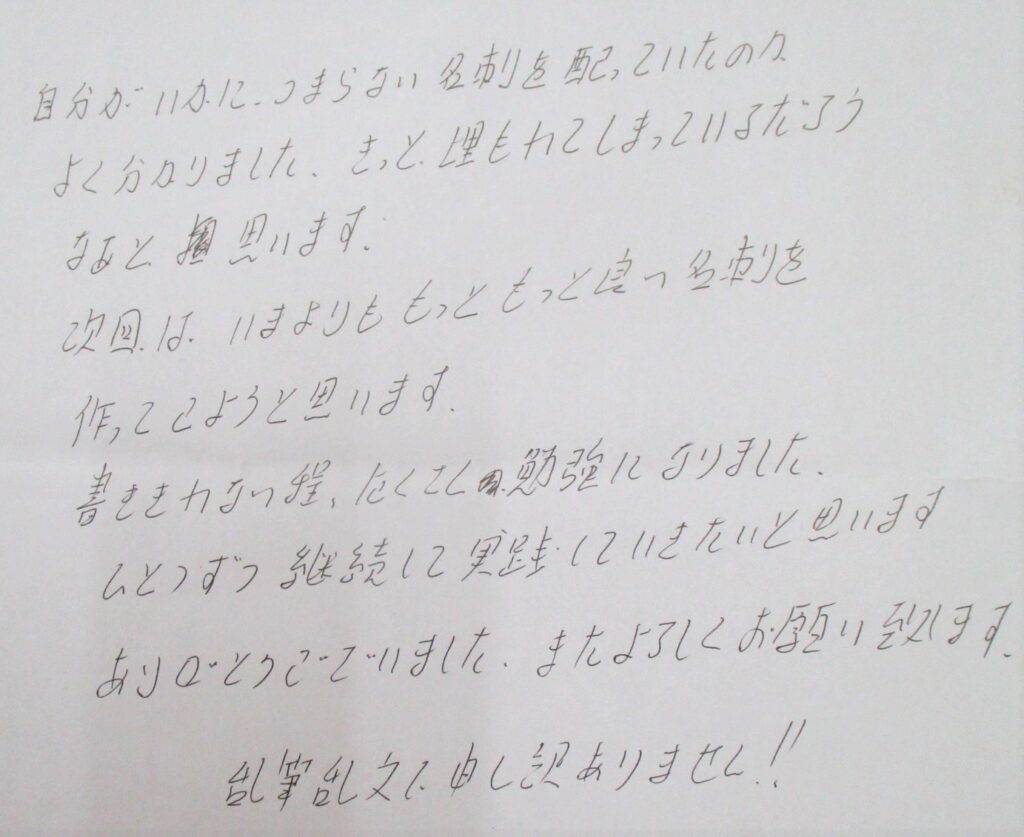 自分がいかに、つまらない名刺を配っていたのか
よく分かりました、きっと、埋もれてしまっているだろう
なあと 思います。
次回は、いまよりももっともっと良い名刺を
作ってこようと思います。
書ききれない程、たくさん勉強になりました。
ひとつずつ継続して実践していきたいと思います
ありがとうございました。またよろしくお願い致します。
乱筆乱文で申し訳ありません!!